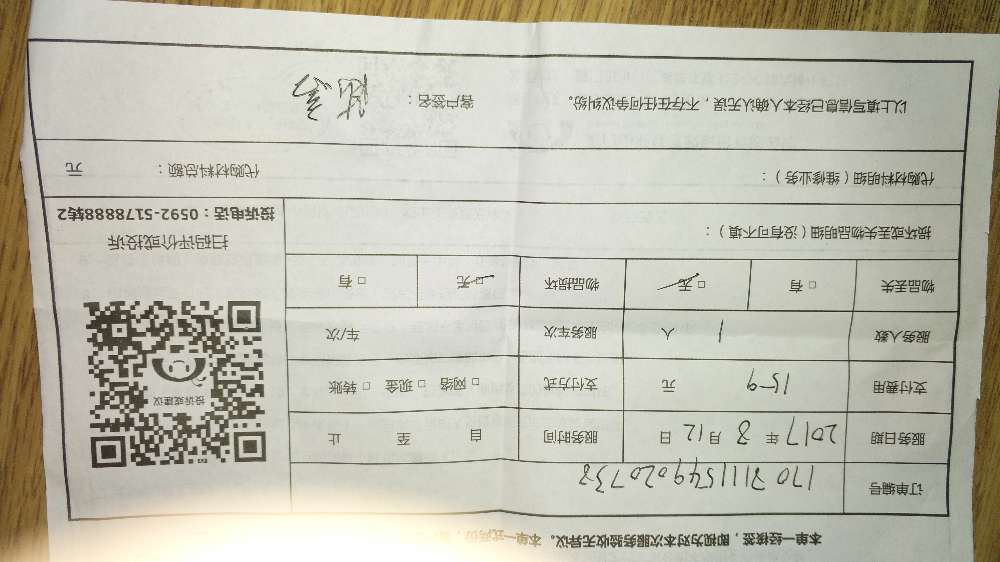 本单一经核签，即视为对本次服务验收无异议。本单一式两份，
订单编号 1703111549020738
服务日期 2017 年 3 月 12 日 服务时间 自 至 止
支付费用 159 元 支付方式 □ 网络 □ 现金 □ 转账
服务人数 1 人 服务车次 车/次
物品丢失 □ 有 □ 无 物品损坏 □ 无 □ 有
投诉或建议
损坏或丢失物品明细（没有可不填）：
扫码评价或投诉
投诉电话：0592-5178888转2
代购材料明细（维修业务）： 代购材料总额： 元
以上填写信息已经本人确认无误，不存在任何争议纠纷。 客户签名：